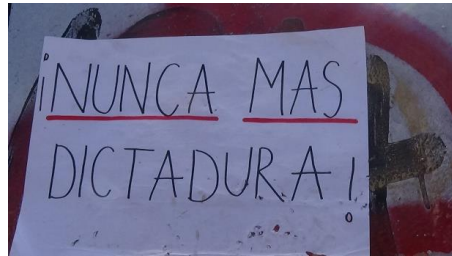 ¡NUNCA MAS
DICTADURA!